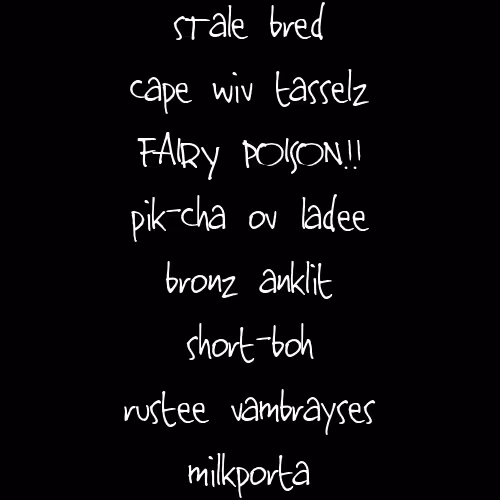 stale bred
cape wiv tasselz
FAIRY POISON!!
pik-cha ov ladee
bronz anklit
short-boh
rustee vambrayses
milkporta